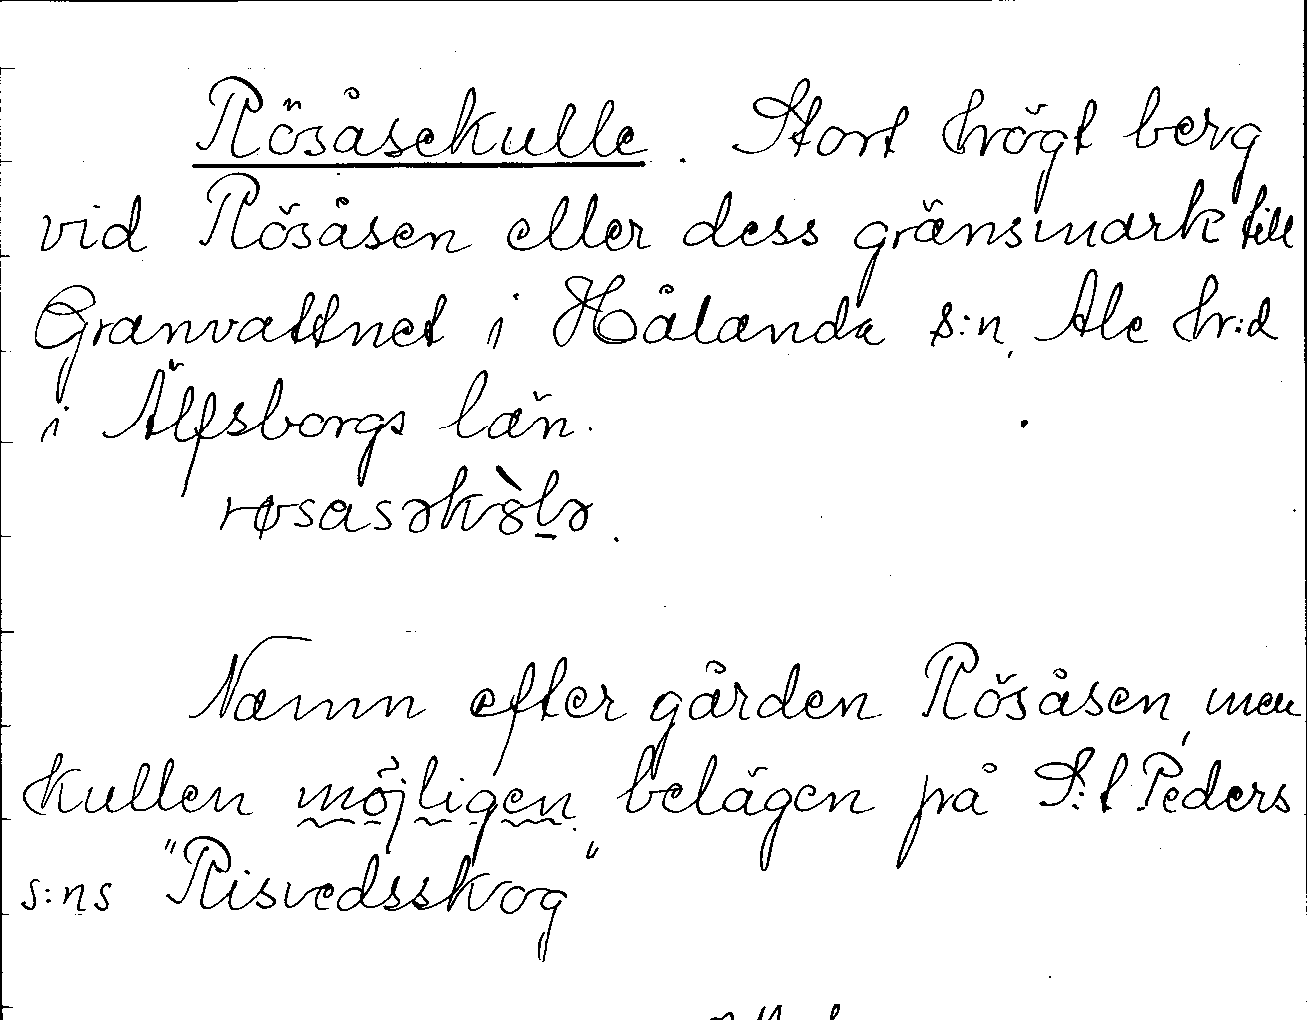 Rösåsekulle. Stort högt berg
vid Rösåsen eller dess gränsmark till
Granvattnet i Hålanda s:n, Ale hr:d
i Älfsborgs län.
røsasəkòlə.
Namn efter gården Rösåsen, men
kullen möjligen belägen på S:t Peders
s:ns "Risvedsskog"